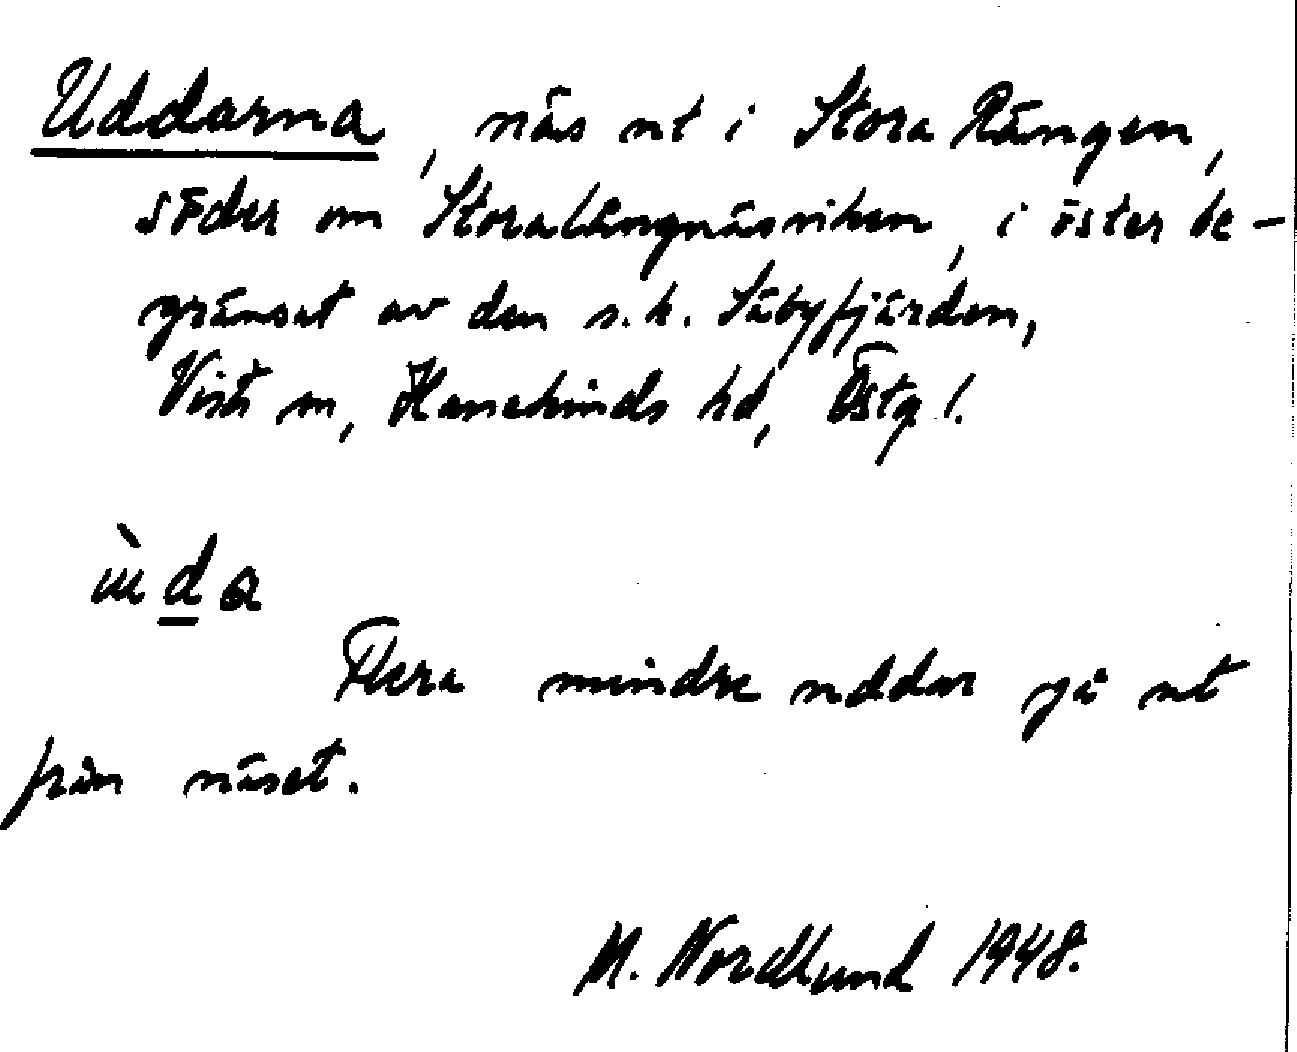 Uddarna, näs ut i Stora Rängen,
söder om Storalångnäsviken, i öster be-
gränsat av den s.k. Säbyfjärden,
Vist sn, Hanekinds hd, Östg l.
ùda
Flera mindre uddar gå ut
från näset.
M. Nordlund 1948.